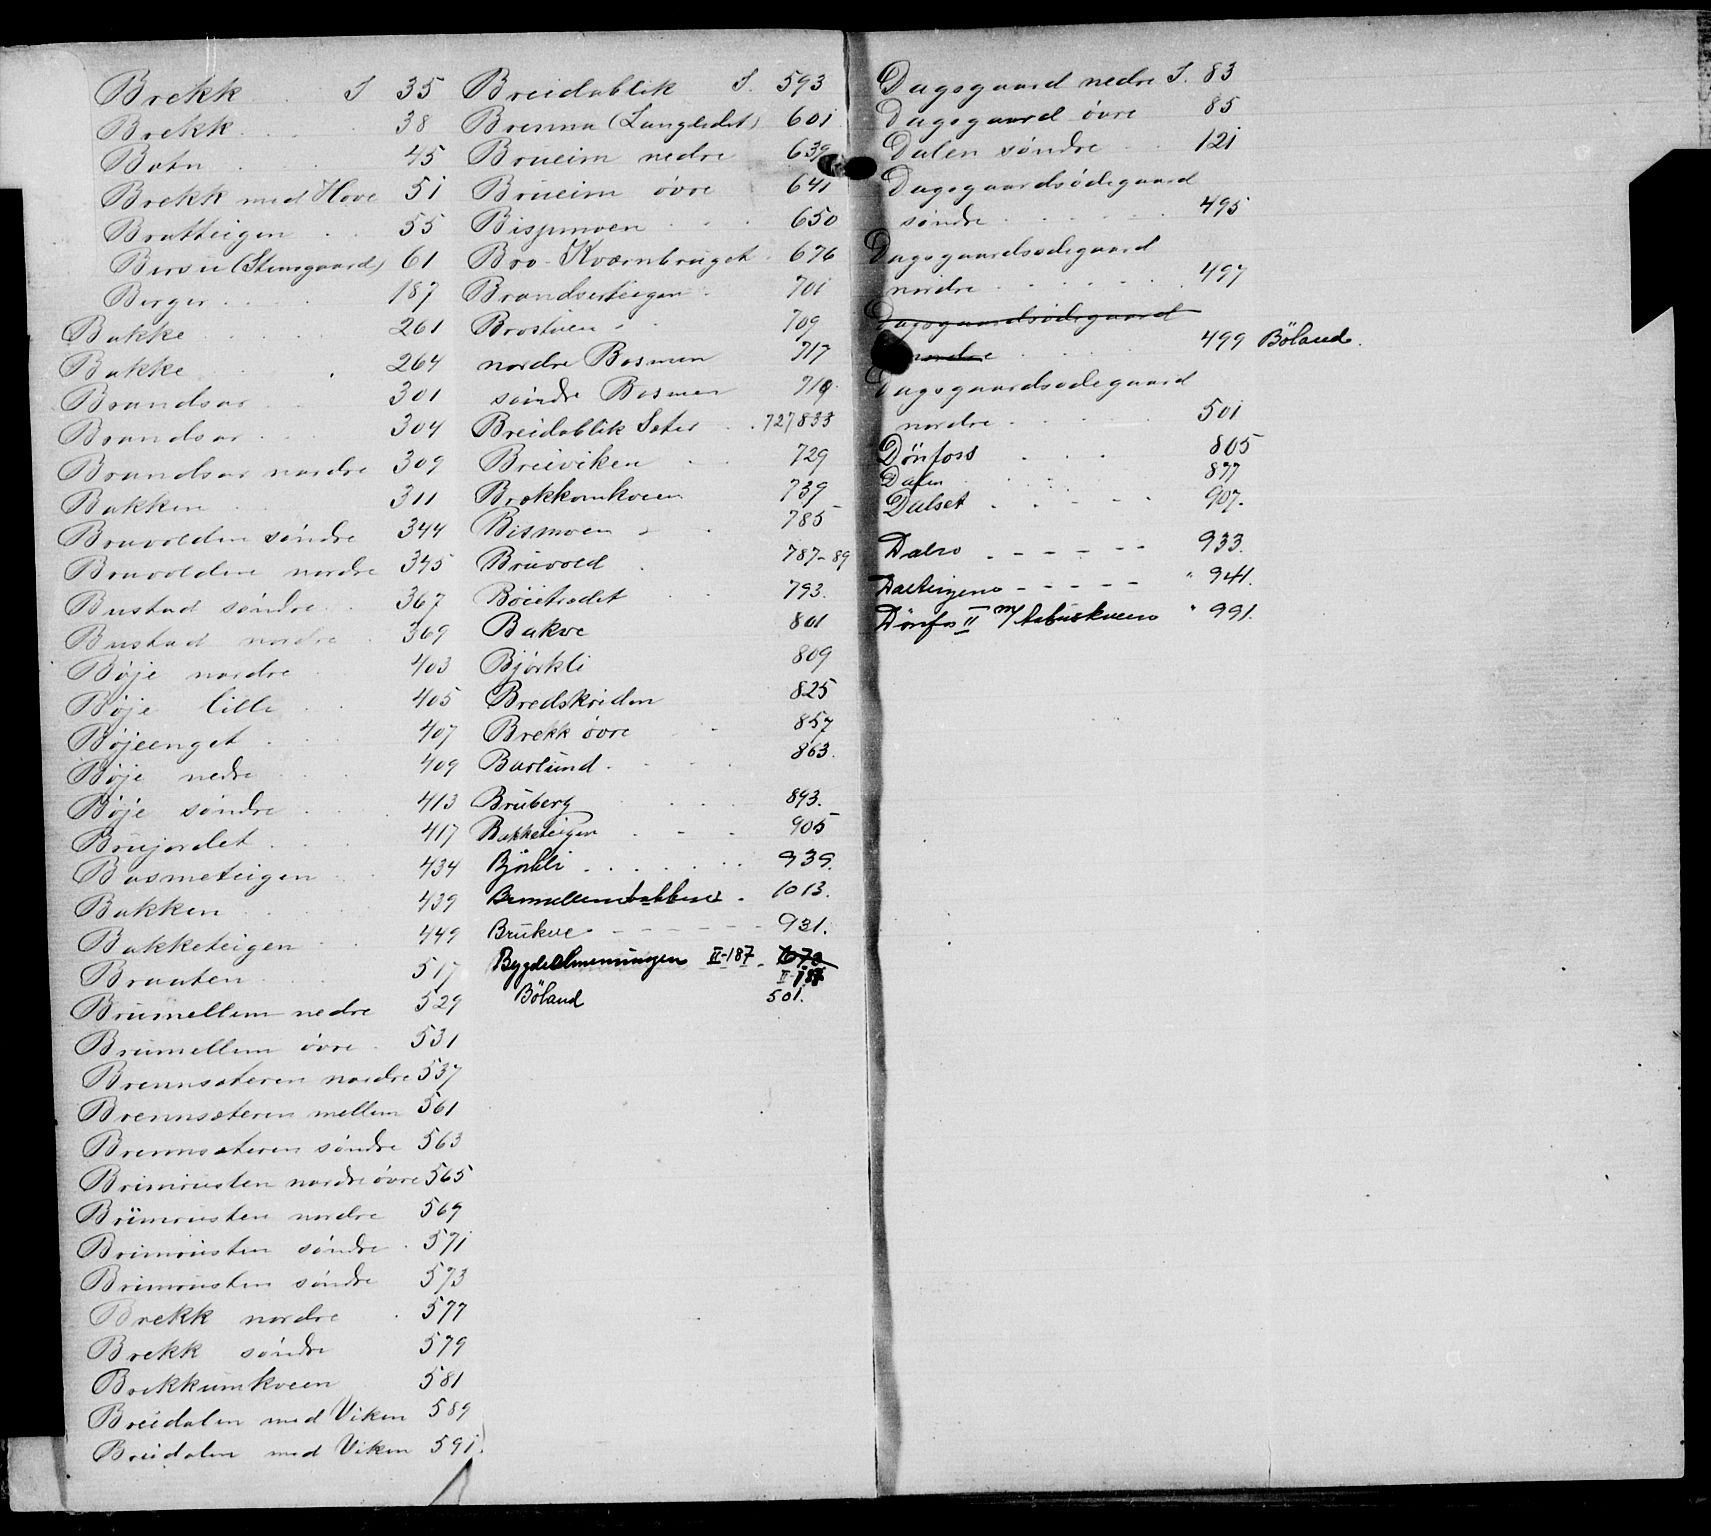 Brekk S 35
Brekk 38
Botn 45
Brekk med Hove 51
Bratteigen 55
Bersu (Stensgaard) 61
Berger 187
Bakke 261
Bakke 264
Brandsar 301
Brandsar 304
Brandsar nordre 309
Bakken 311
Bruvolden söndre 344
Bruvolden nordre 345
Bustad söndre 367
Bustad nordre 369
Böje nordre 403
Böje lille 405
Böjeenget 407
Böje nedre 409
Böje söndre 413
Brujordet 417
Basmeteigen 434
Bakken 439
Bakketeigen 449
Braaten 517
Brumellem nedre 529
Brumellem övre 531
Brennsæteren nordre 537
Brennsæteren mellem 561
Brennsæteren söndre 563
Brimrusten nordre övre 565
Brimrusten nordre 569
Brimrusten söndre 571
Brimrusten söndre 573
Brekk nordre 577
Brekk söndre 579
Brekkumkveen 581
Breidalen med Viken 589
Breidalen med Viken 591
Breidablik S. 593
Brenna (Langledet) 601
Brueim nedre 639
Brueim övre 641
Bispmoen 650
Bro-Kværnbruget 676
Brandserteigen 701
Brostuen 709
nordre Basmen 717
söndre Basmen 719
Breidablik Sæter 727 833
Breiviken 729
Brekkomkveen 739
Bismoen 785
Bruvold 787-89
Böietrædet 793.
Bakve 801
Björkli 809
Bredskriden 825
Brekk övre 857
Baslund 863.
Bruberg 893.
Bakketeigen 905
Björkli 939.
Brumellembakken 1013.
Brukve 931.
Bygdealmenningen II-187 1670
II-187
Böland 501.
Dagsgaard nedre S. 83
Dagsgaard övre 85
Dalen söndre 121
Dagsgaardsödegaard
söndre 495
Dagsgaardsödegaard
nordre 497
Dagsgaardsödegaard
nordre 499 Böland.
Dagsgaardsödegaard
nordre 501
Dönfoss 805
Dalen 877
Dalset 907.
Dalro 933.
Dalteigen " 941.
Dönfos II m/ " 991.